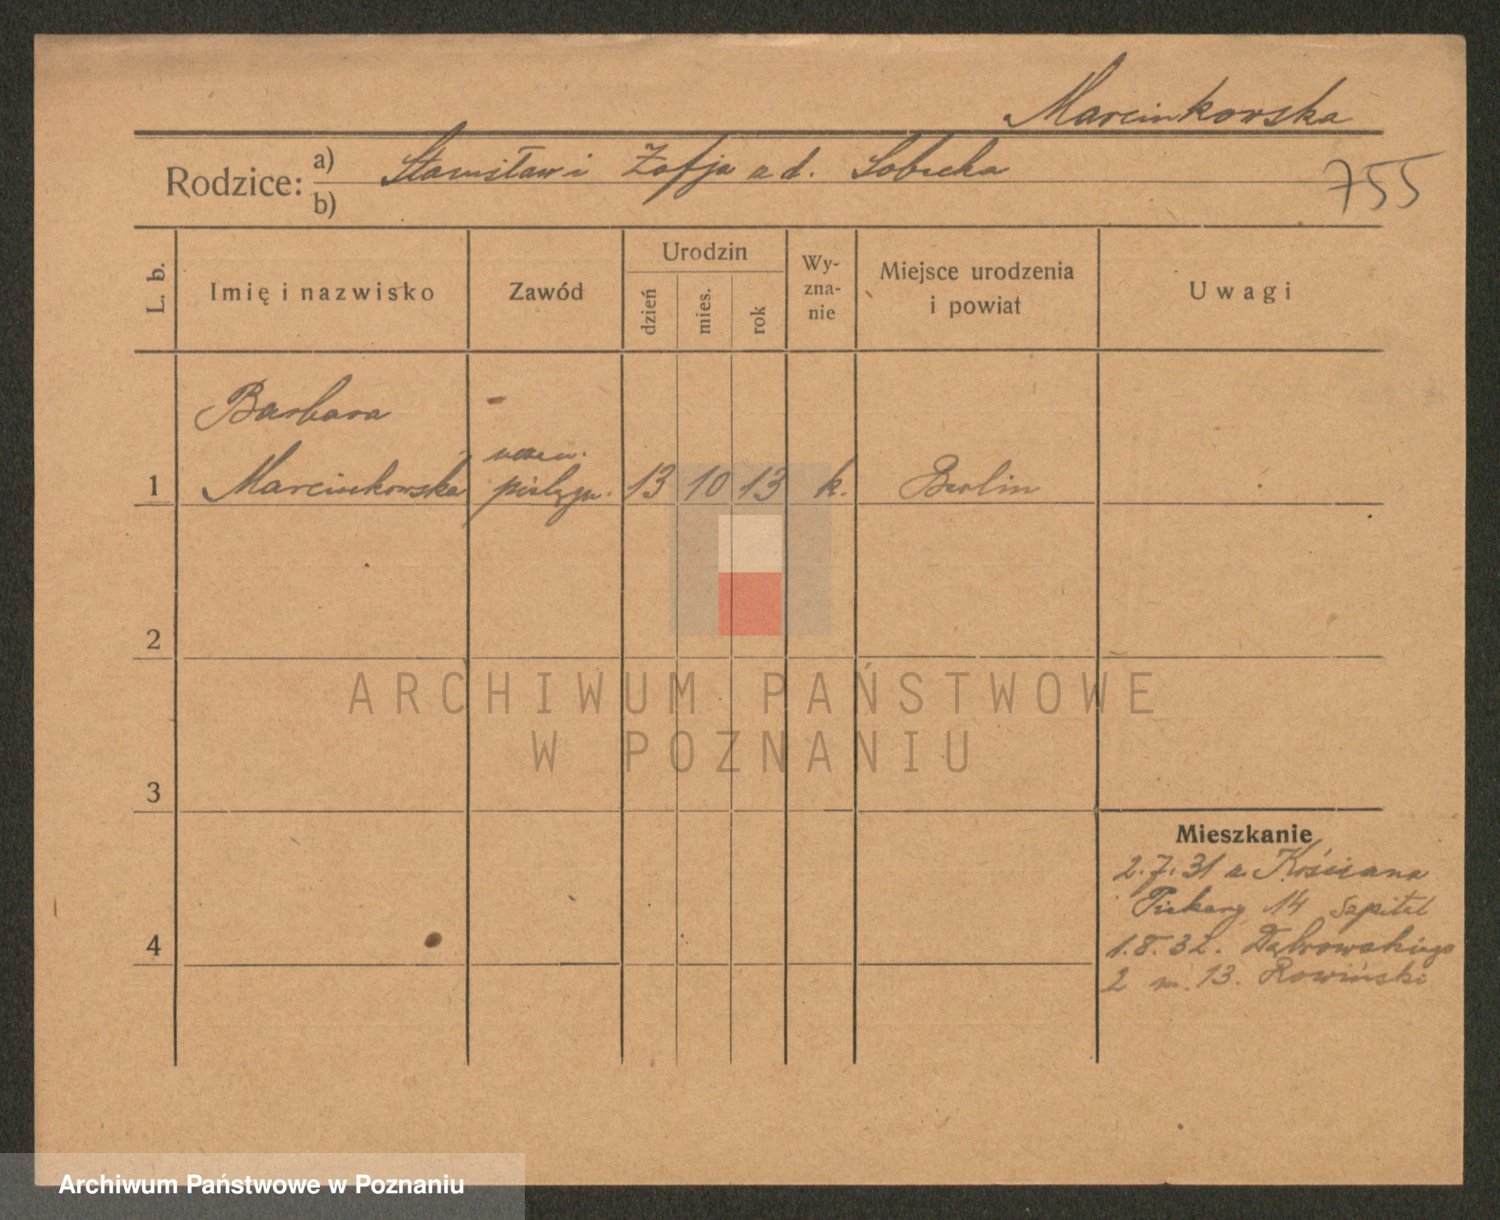 Marcinkowska
Rodzice: a) Stanisław i Zofja z d. Sobecka
b)
755
L. b.
Imię i nazwisko
Zawód
Urodzin
dzień
mies.
rok
Wy-
zna-
nie
Miejsce urodzenia
i powiat
Uwagi
Barbara
1 Marcinkowska
uczen.
pielęgn.
13 10 13 k. Berlin
2
3
4
ARCHIWUM PAŃSTWOWE
W POZNANIU
Mieszkanie
2.7.31 z Kościana
Piekary 14 szpital
1.8.32. Dąbrowskiego
2 m. 13. Rowiński
Archiwum Państwowe w Poznaniu